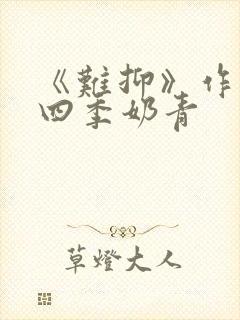 《難抑》作
四季奶青
草燈大人